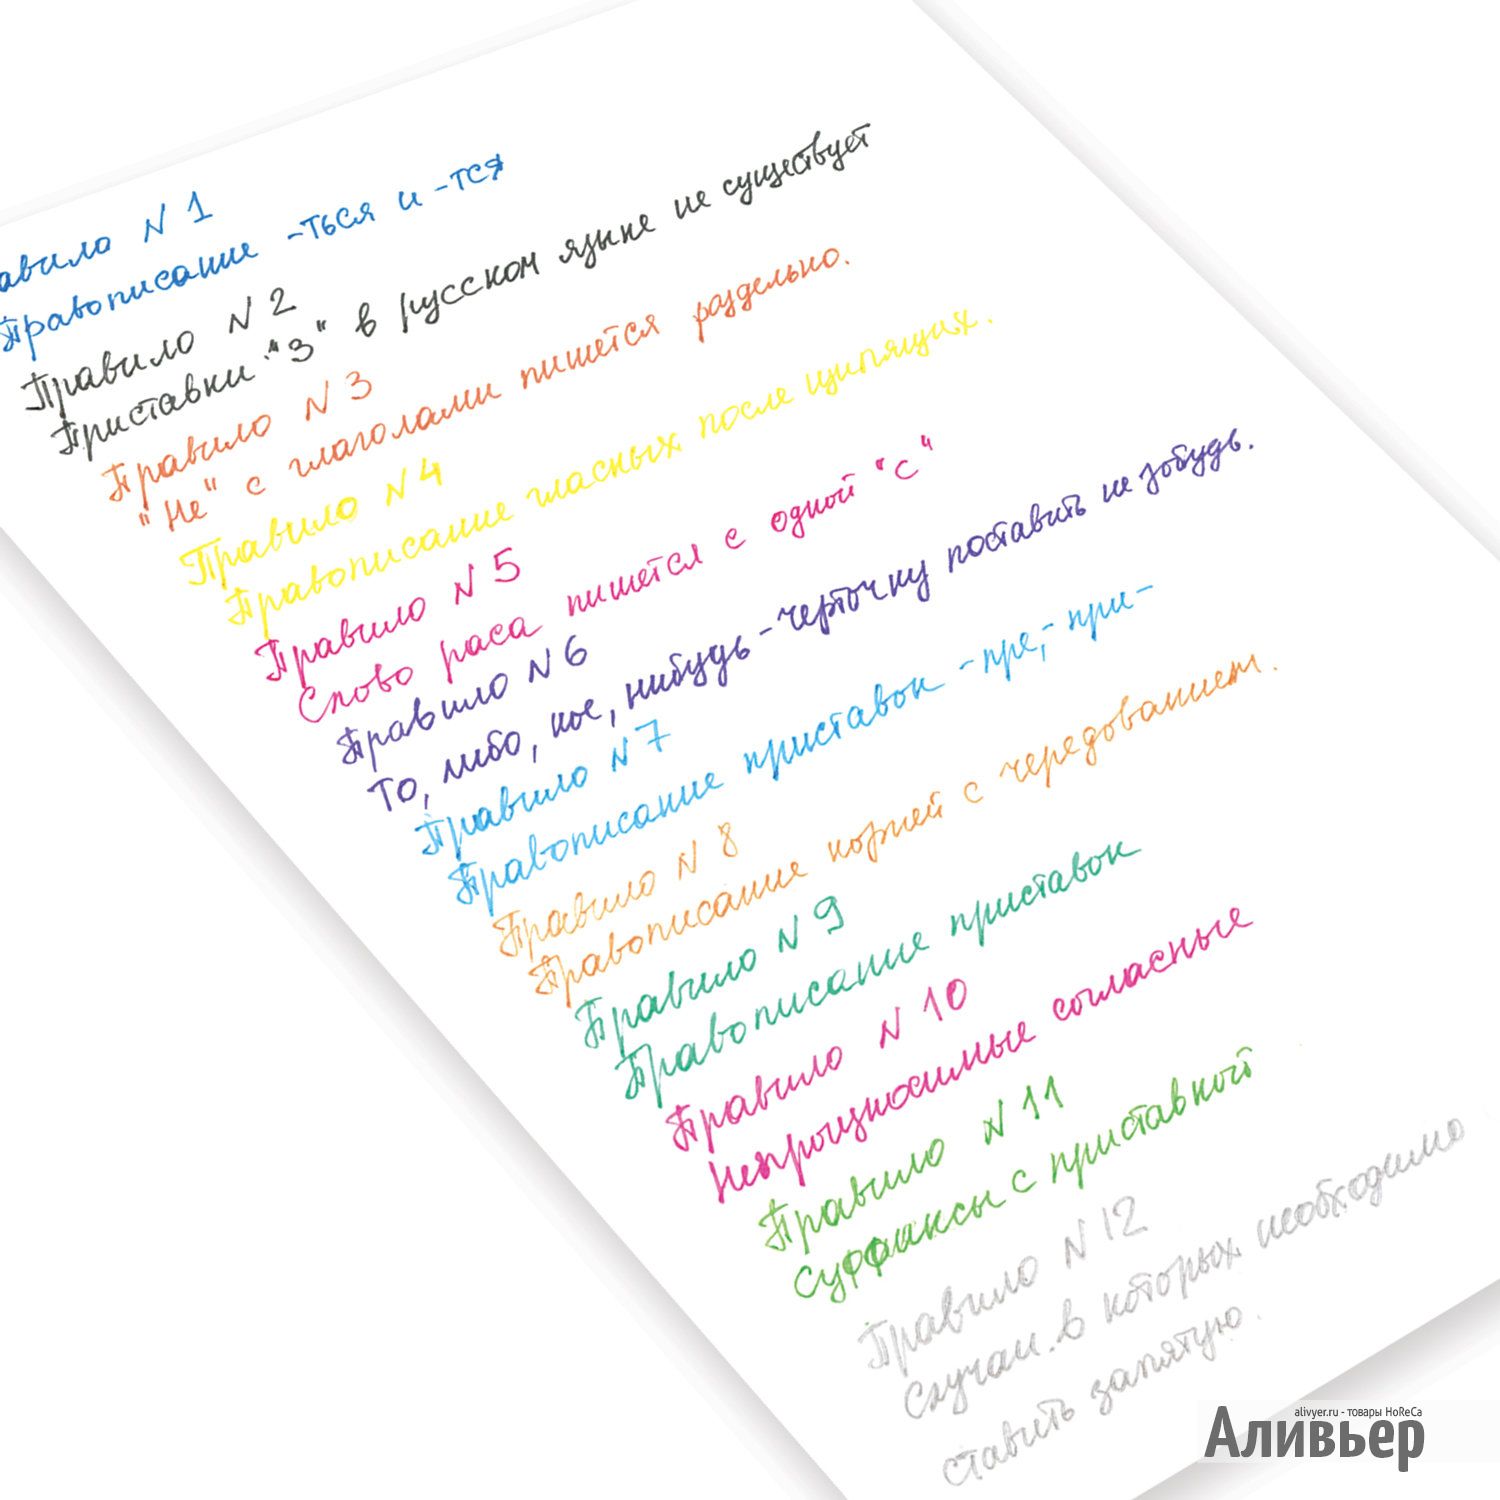 авило N 1
Правописание -ться и -тся
Правило N 2
Приставки "З" в русском языке не существует
Правило N 3
"Не" с глаголами пишется раздельно.
Правило N 4
Правописание гласных после шипящих.
Правило N 5
Слово раса пишется с одной "с"
Правило N 6
То, либо, кое, нибудь - черточку поставить не забудь.
Правило N 7
Правописание приставок -пре,- при-
Правило N 8
Правописание корней с чередованием.
Правило N 9
Правописание приставок
Правило N 10
Непроизносимые согласные
Правило N 11
Суффиксы с приставкой
Правило N 12
Случаи в которых необходимо
ставить запятую.
alivyer.ru - товары HoReCa
Аливьер